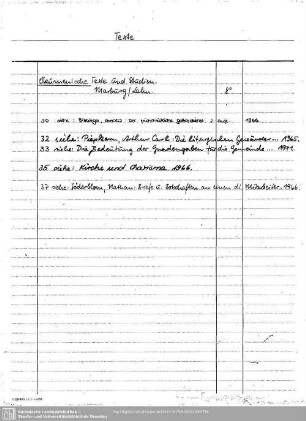 Texte
Ökumenische Texte und Studien.
Marburg/Lahn. 8°
30 siehe: 2. Aufl. 1966
32 siehe: Piepkorn, Arthur Carl: Die liturgischen Gewänder... 1965.
33 siehe: Die Bedeutung der Gnadengaben für die Gemeinde... 1971.
35 siehe: Kirche und Charisma 1966.
37 siehe: Söderblom, Nathan: Briefe u. Botschaften an einen dt. Mitarbeiter. 1966.
Sächsische Landesbibliothek -
Staats- und Universitätsbibliothek Dresden